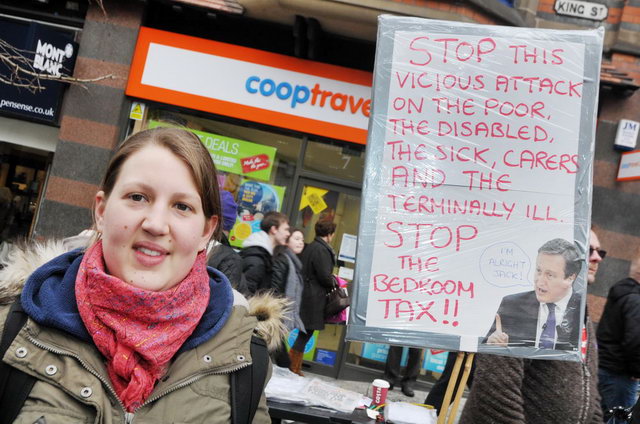 KING ST
MONT
BLANC
pensense.co.uk
cooptrave
DEALS
STOP THIS
VICIOUS ATTACK
ON THE POOR,
THE DISABLED,
THE SICK, CARERS
AND THE
TERMINALLY ILL.
STOP
THE
BEDROOM
TAX!!
I'M
ALRIGHT
JACK!